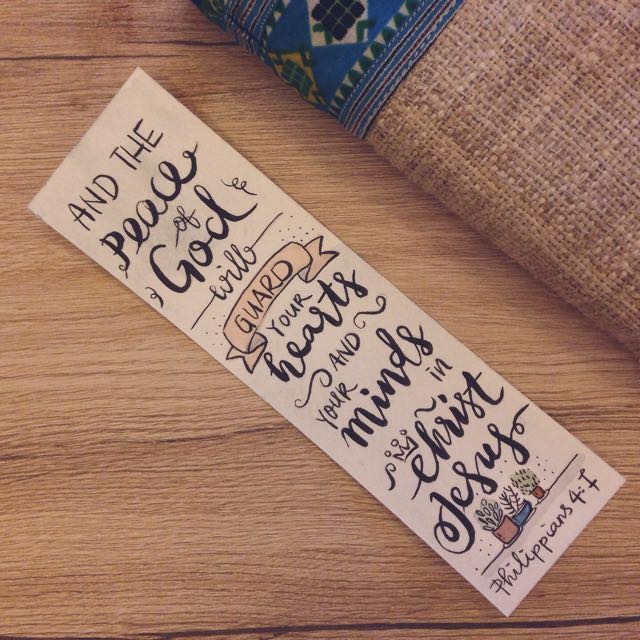 AND THE
Peace
of
God
will
GUARD
YOUR
hearts
AND
YOUR
minds
in
Christ
Jesus
Philippians 4:7